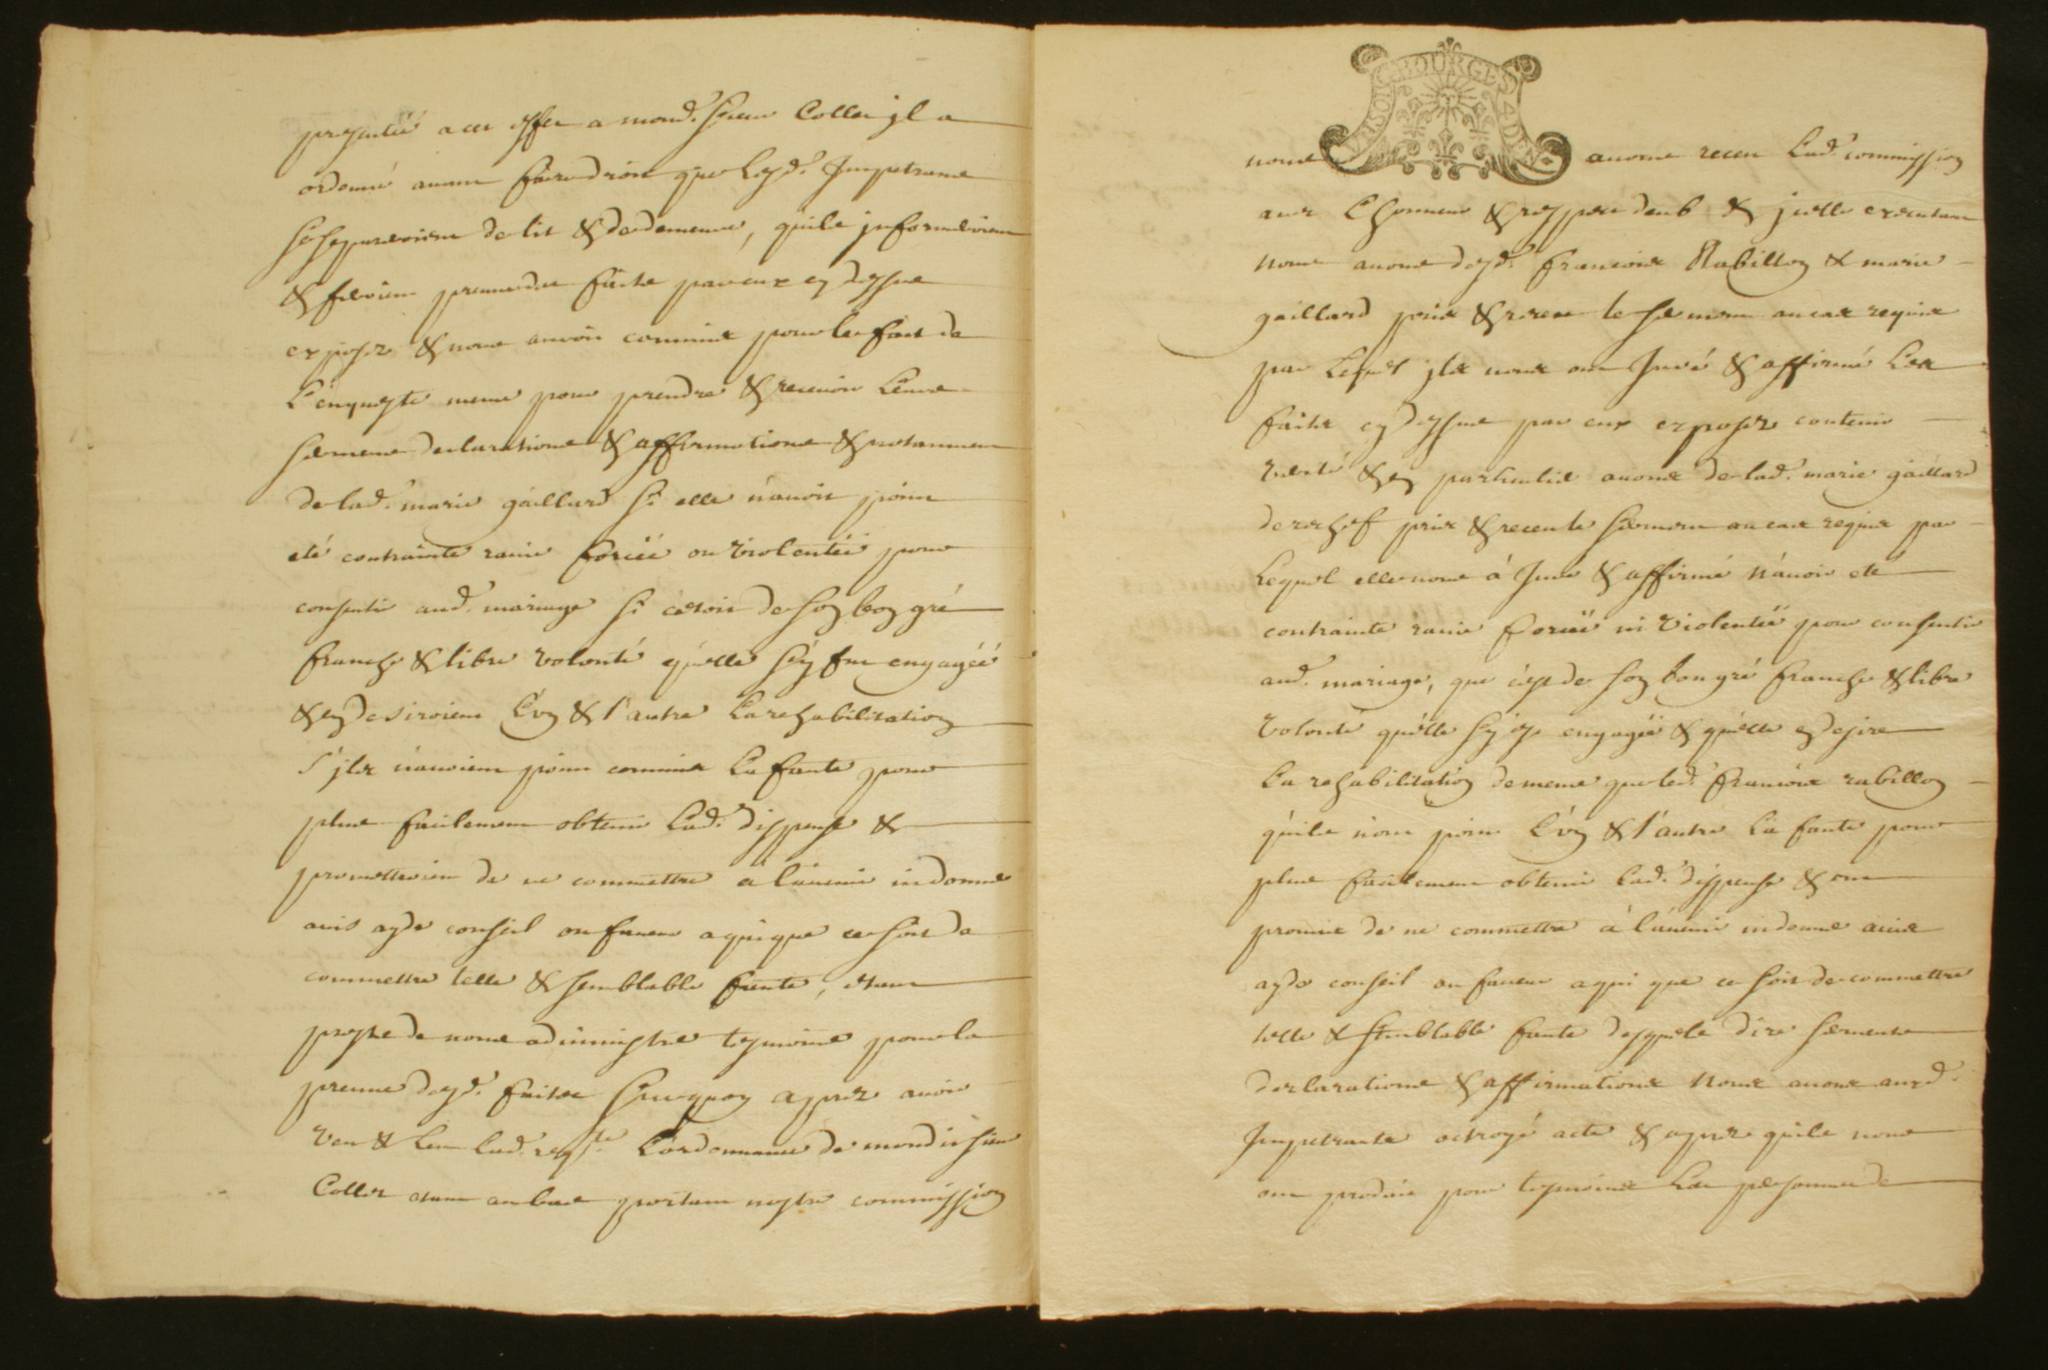 presentée a cet effet a mond. sieur Collet jl a
ordonné avant faire droit que lesd. Impetrans
se separeroient de lit & de demeure, quils informeroient
& feroient preuve des faits par eux cy dessus
exposez & nous auroit commis pour le fait de
L'enqueste meme pour prendre & recevoir leurs
serments declarations & affirmations & notamment
de lad. marie gaillard si elle n'auoit point
été contrainte ravie forcéé ou violentéé pour
consentir aud. mariage si cetoit de son bon gré
franche & libre volonté qu'elle s'ÿ fut engagéé
& en desiroient L'vn & l'autre La rehabilitation
s'jls n'auoient point commis La faute pour
plus facilement obtenir Lad. dispense &
promettroient de ne commettre a l'auenir ni donner
avis ayde conseil ou faueur a qui que ce soit de
commettre telle & semblable faute, etant
prest de nous administrer tesmoins pour la
preuve desd. faits surquoy apres avoir
veu & leu Lad. reqte. L'ordonnance de mondit sieur
Collet etant au bas portant nostre commission
nous auons receu Lad. commission
auec L'honneur & respect deub & jcelle executant
nous auons desd. francois Rabillon & marie
gaillard pris & receu le serment au cas requis
par Lequel jls nous ont Juré & affirmé Les
faits cy dessus par eux exposez contenir
verité & en particulier auons de lad. marie gaillard
derechef pris & receu le serment au cas requis par
Lequel elle nous à Juré & affirmé n'auoir eté
contrainte ravie forcéé ni violentéé pour consentir
aud. mariage, que c'est de son bon gré franche & libre
volonté qu'elle s'ÿ est engagéé & qu'elle en desire
La rehabilitation de meme que led. francois rabillon
qu'ils n'ont point L'vn & l'autre La faute pour
plus facilement obtenir Lad. dispense & ont
promis de ne commettre à l'auenir ni donner auis
ayde conseil ou faueur a qui que ce soit de commettre
telle & semblable faute desquels dire serments
declarations & affirmations nous auons auxd.
Impetrants octroyé acte & apres quils nous
ont produit pour tesmoins Les personnes de
BOURGES